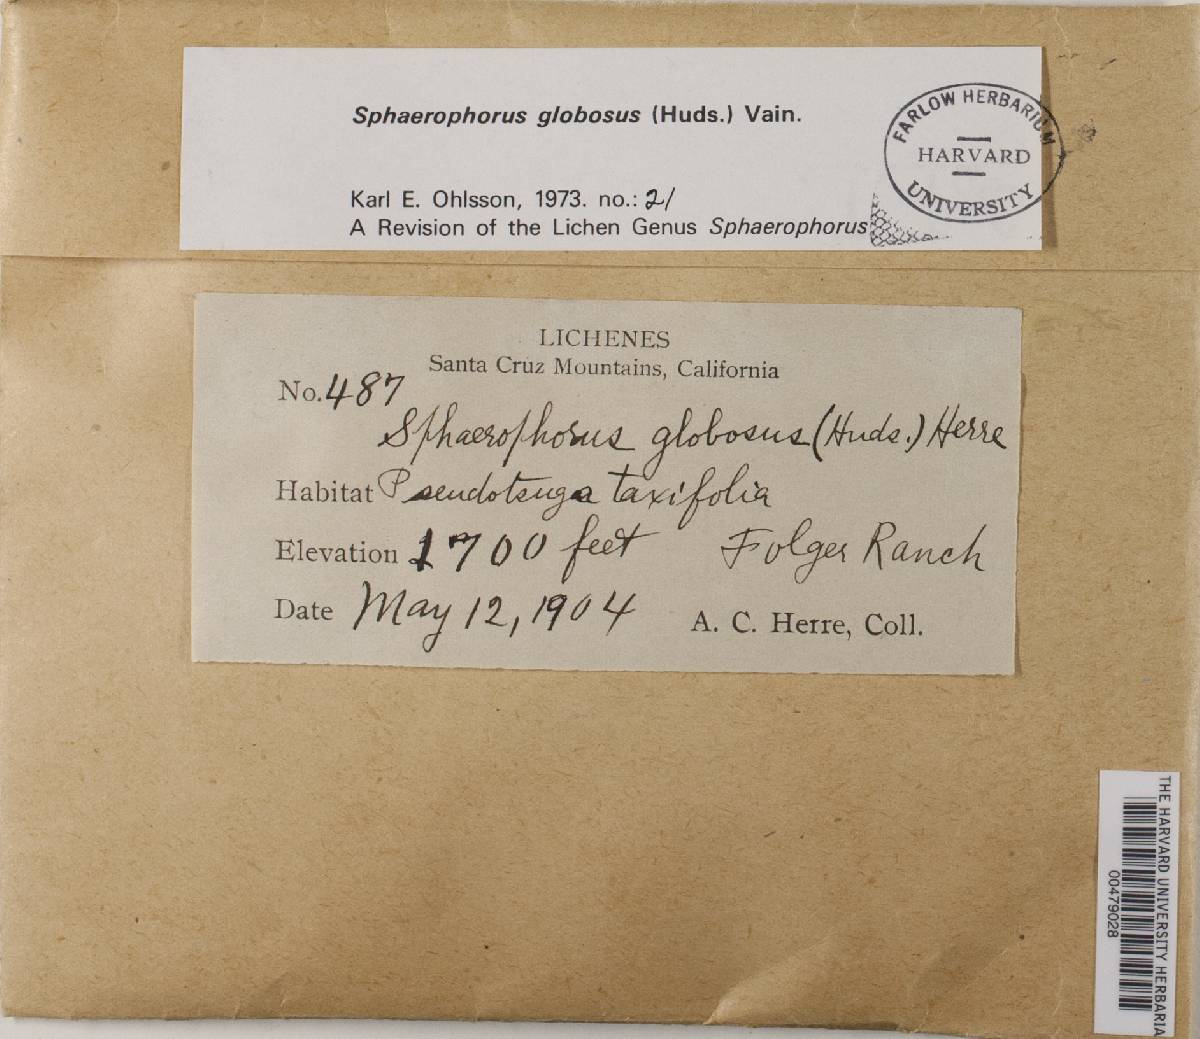 Sphaerophorus globosus (Huds.) Vain.
FARLOW HERBARIUM
HARVARD
UNIVERSITY
Karl E. Ohlsson, 1973. no.: 21
A Revision of the Lichen Genus Sphaerophorus
LICHENES
Santa Cruz Mountains, California
No. 487
Sphaerophorus globosus (Huds.) Herre
Habitat Pseudotsuga taxifolia
Elevation 1700 feet Folger Ranch
Date May 12, 1904 A. C. Herre, Coll.
THE HARVARD UNIVERSITY HERBARIA
00479028